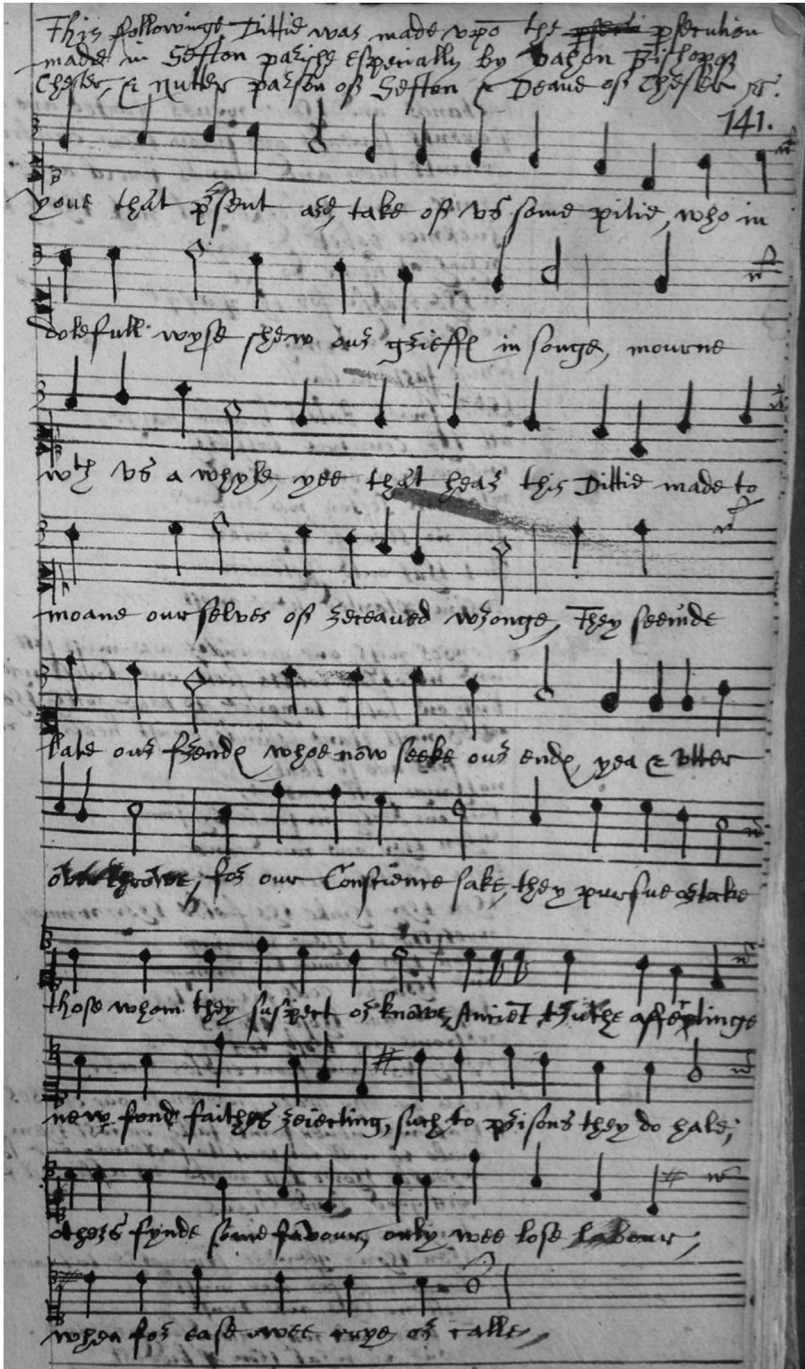 This followinge Dittie was made vpō the psecution
made in Sefton parishe Especially by Vahon Bishop of
Chester, & Nutter parson of Sefton & Deane of Chester &c.
141.
Youe that pʳsent are, take of vs some pitie, who in
dolefull wyse shew our grieffe in songe, mourne
wᵗʰ vs a whyle, yee that hear this Dittie made to
moane our selves of receaved wronge, They seemde
late our frende whoe now seeke our ende, yea & vtter
for our Conscience sake, they pursue or take
those whom they suspect or knowe, Anciēt truthe affectinge
new fond faithes reiecting, such to prisons they do hale,
others fynde some favour, only wee lose labour,
when for ease wee crye or calle,